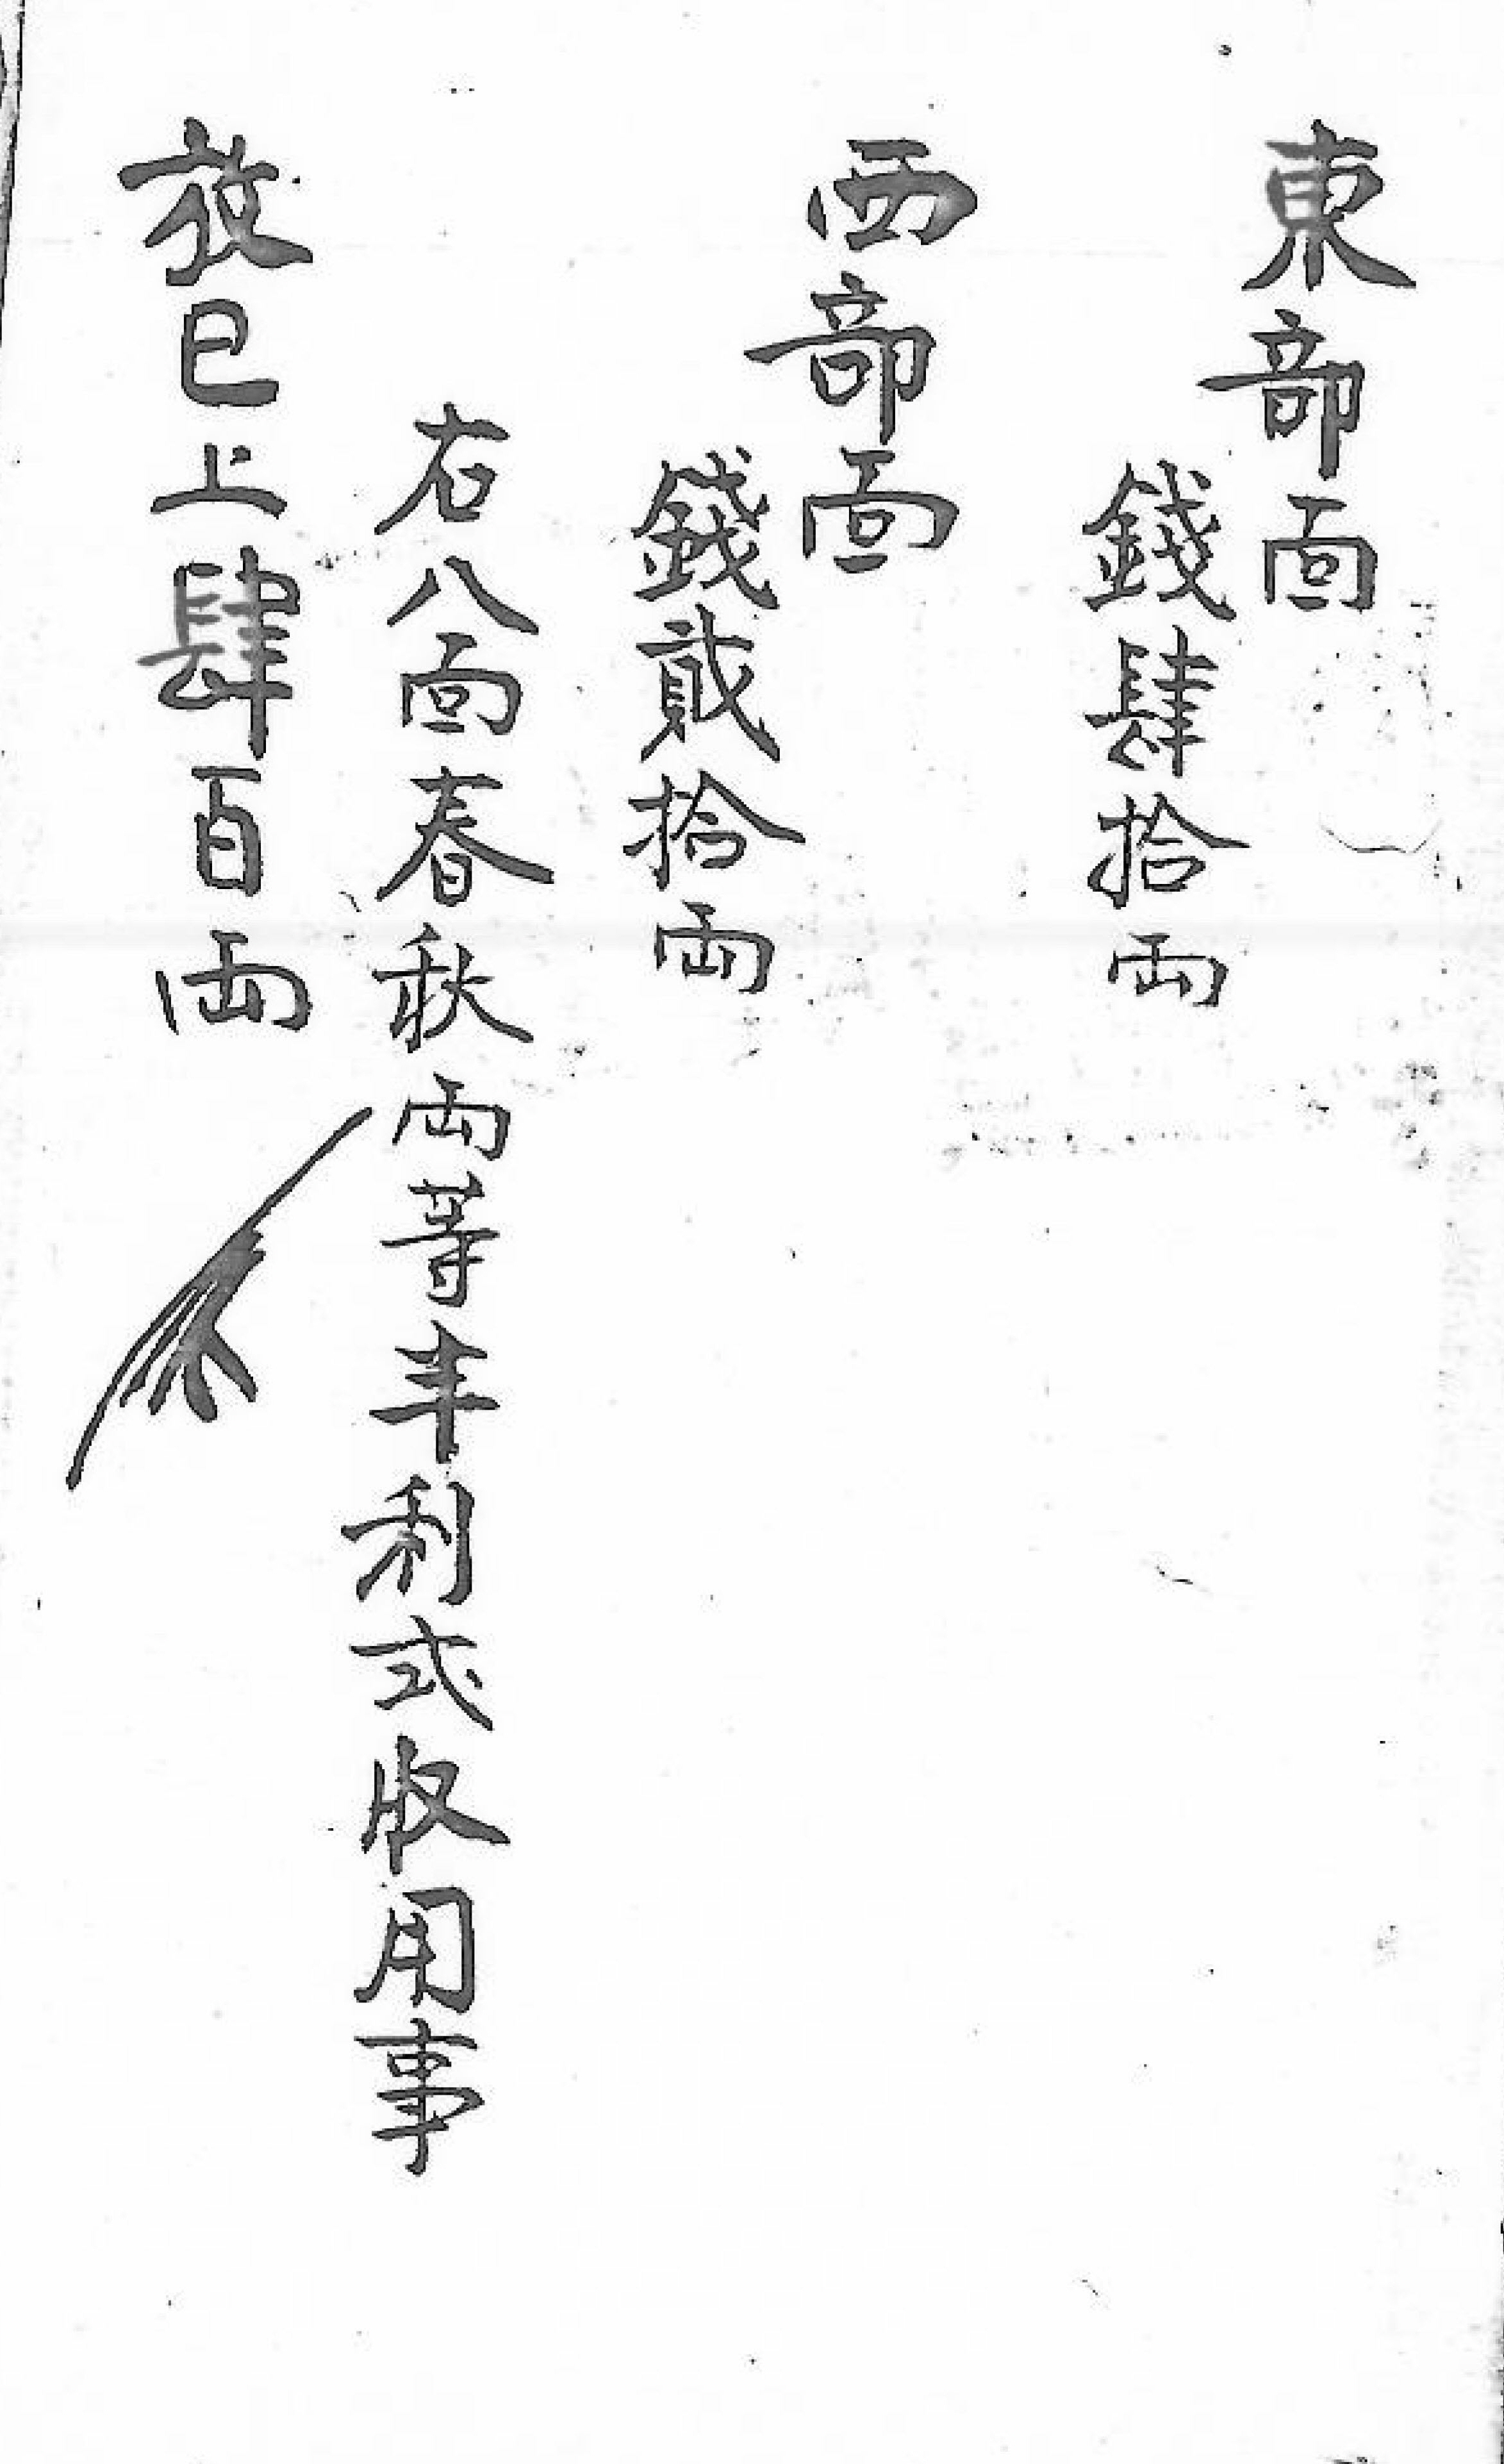 東部面
錢肆拾両
西部面
錢貳拾両
右八面春秋両等半利式收用事
放已上肆百両